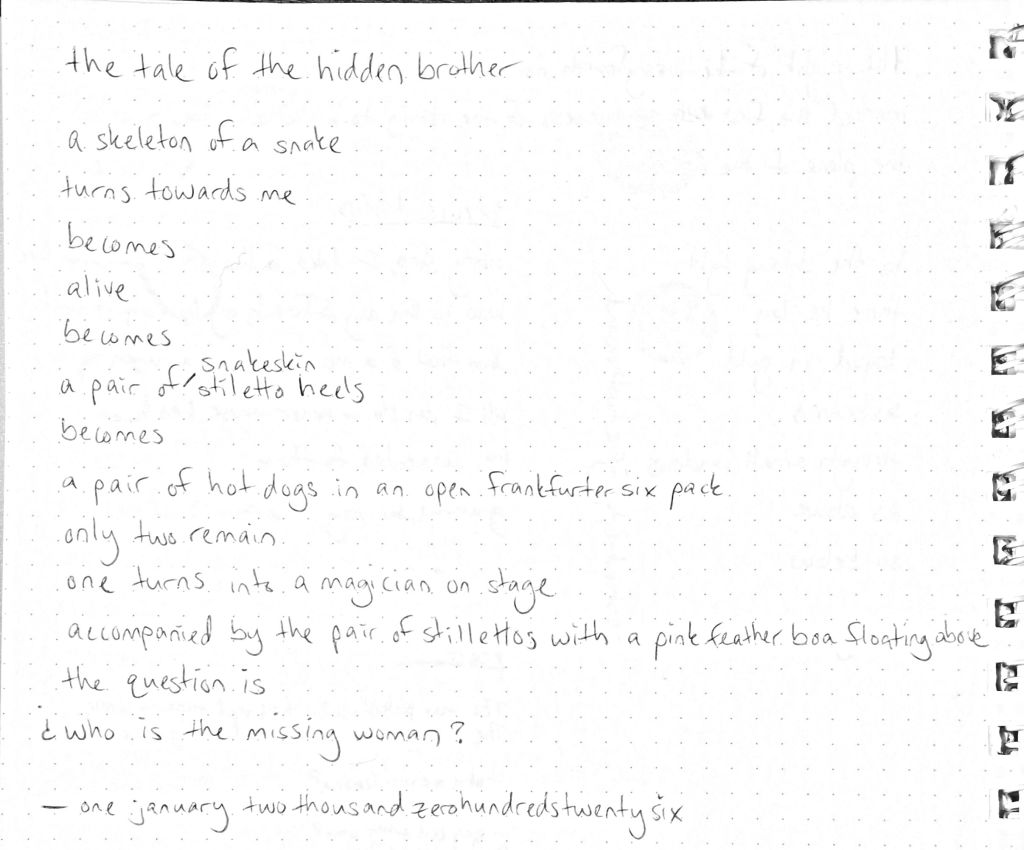 the tale of the hidden brother
a skeleton of a snake
turns towards me
becomes
alive
becomes
a pair of snakeskin stiletto heels
becomes
a pair of hot dogs in an open frankfurter six pack
only two remain
one turns into a magician on stage
accompanied by the pair of stillettos with a pink feather boa floating above
the question is
¿who is the missing woman?
— one january two thousand zero hundreds twenty six